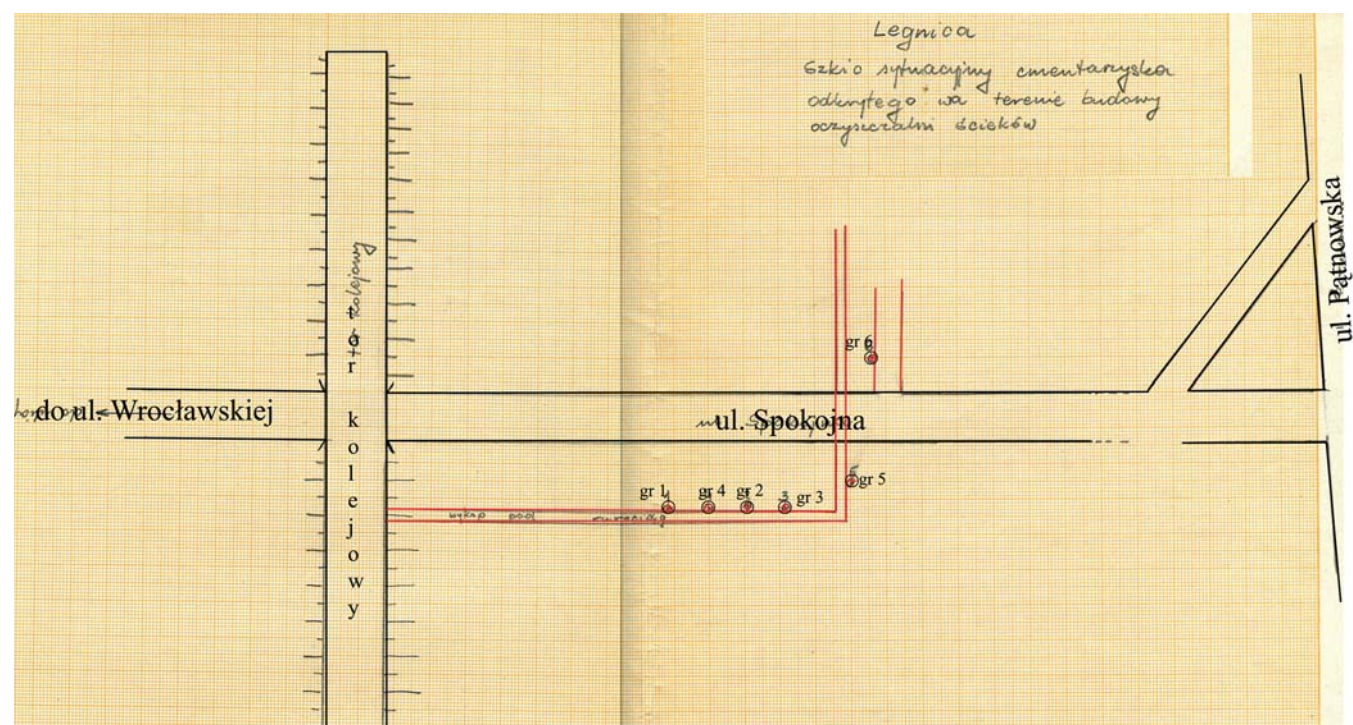 Legnica
Szkic sytuacyjny cmentarzyska
odkrytego na terenie budowy
oczyszczalni ścieków
ul. Pątnowska
tor kolejowy
tor kolejowy
gr 6
6
do ul. Wrocławskiej
ul. Spokojna
gr 1 gr 4 gr 2 gr 3
gr 5
wykop pod rurociąg